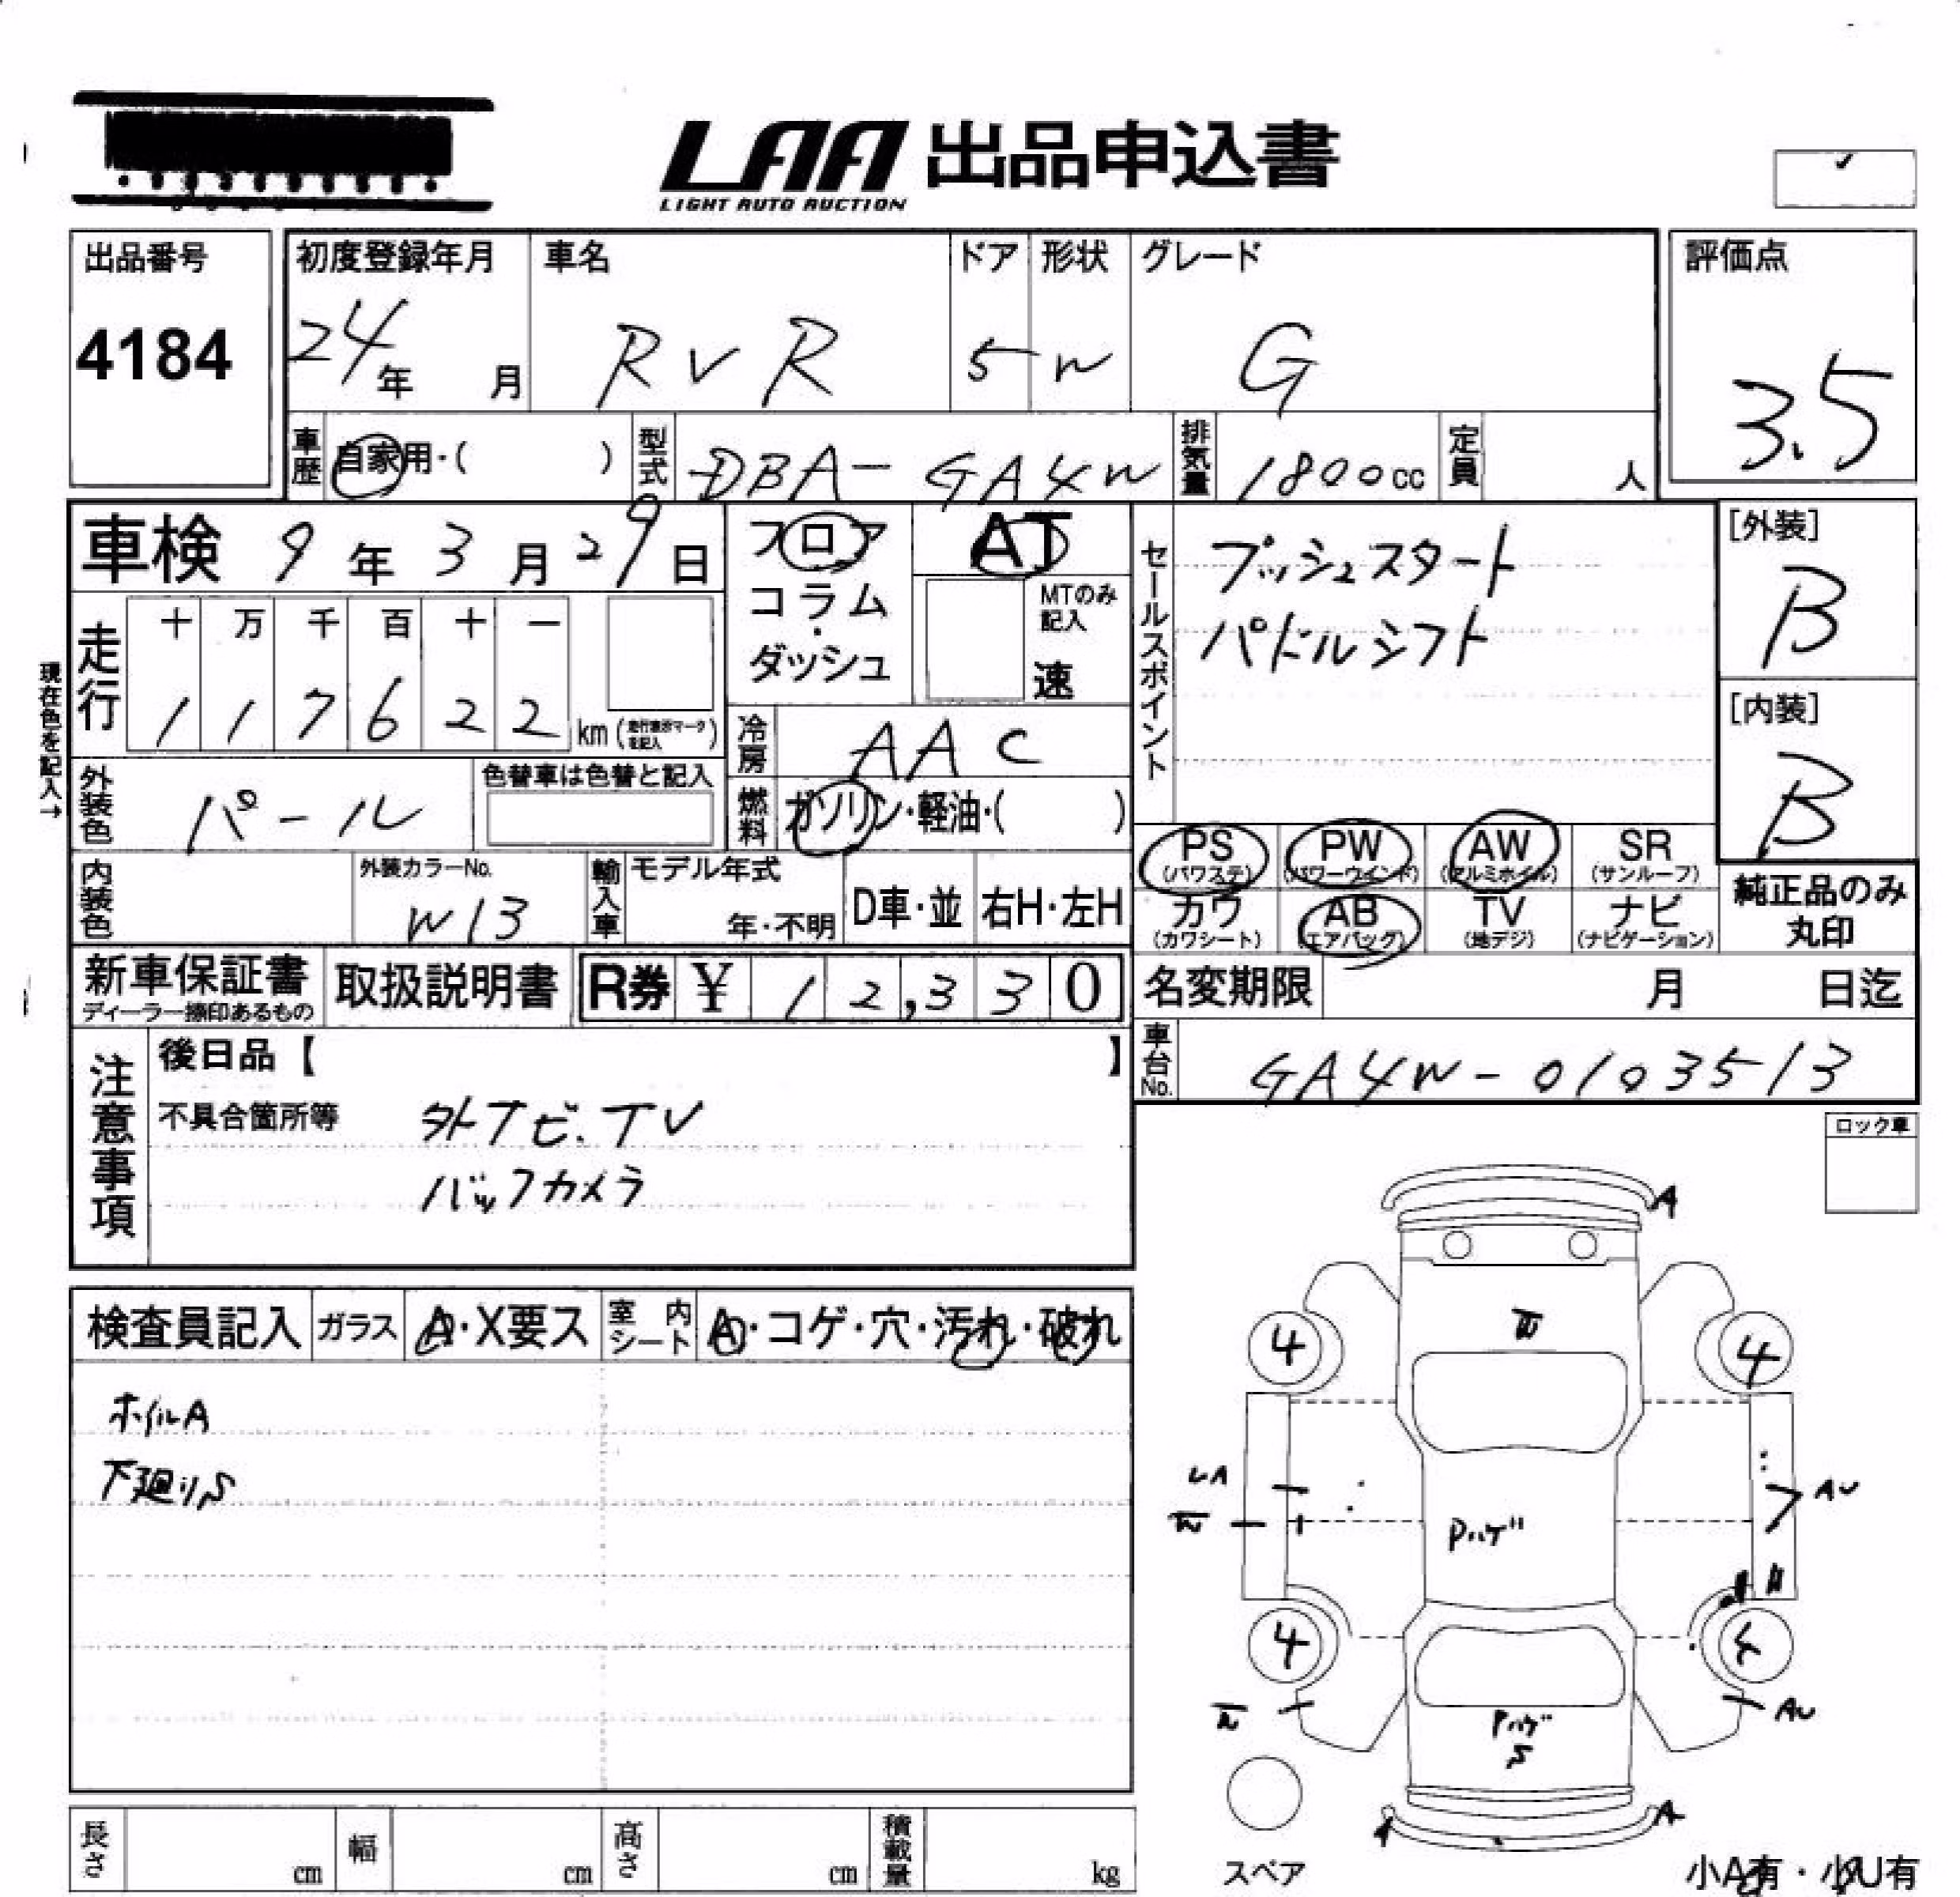 LAA 出品申込書
LIGHT AUTO AUCTION
出品番号
4184
初度登録年月
24年 月
車名
RVR
ドア
5
形状
W
グレード
G
評価点
3.5
車歴 自家用・( )
型式 DBA-GA4W
排気量 1800cc
定員 人
車検 9年3月29日
フロア
コラム
・
ダッシュ
AT
MTのみ
記入
速
セールスポイント
プッシュスタート
パドルシフト
[外装]
B
[内装]
B
現在色を記入→
走行
十 万 千 百 十 一
1 1 7 6 2 2 km (走行表示マークを記入)
冷房 AAC
外装色 パール
色替車は色替と記入
燃料 ガソリン・軽油・( )
PS (パワステ)
PW (パワーウインド)
AW (アルミホイル)
SR (サンルーフ)
カワ (カワシート)
AB (エアバッグ)
TV (地デジ)
ナビ (ナビゲーション)
純正品のみ
丸印
内装色
外装カラーNo.
W13
輸入車
モデル年式
年・不明
D車・並
右H・左H
新車保証書
ディーラー捺印あるもの
取扱説明書
R券 ¥ 12,330
名変期限 月 日迄
車台No. GA4W-0103513
注意事項
後日品【 】
不具合箇所等
外ナビ.TV
バックカメラ
ロック車
検査員記入
ガラス A・X要ス
室内シート A・コゲ・穴・汚れ・破れ
ホイルA
下廻りS
A
4
4
Pハゲ
AU
4
AU
Pハゲ
S
A
スペア
小A有・小U有
長さ cm
幅 cm
高さ cm
積載量 kg